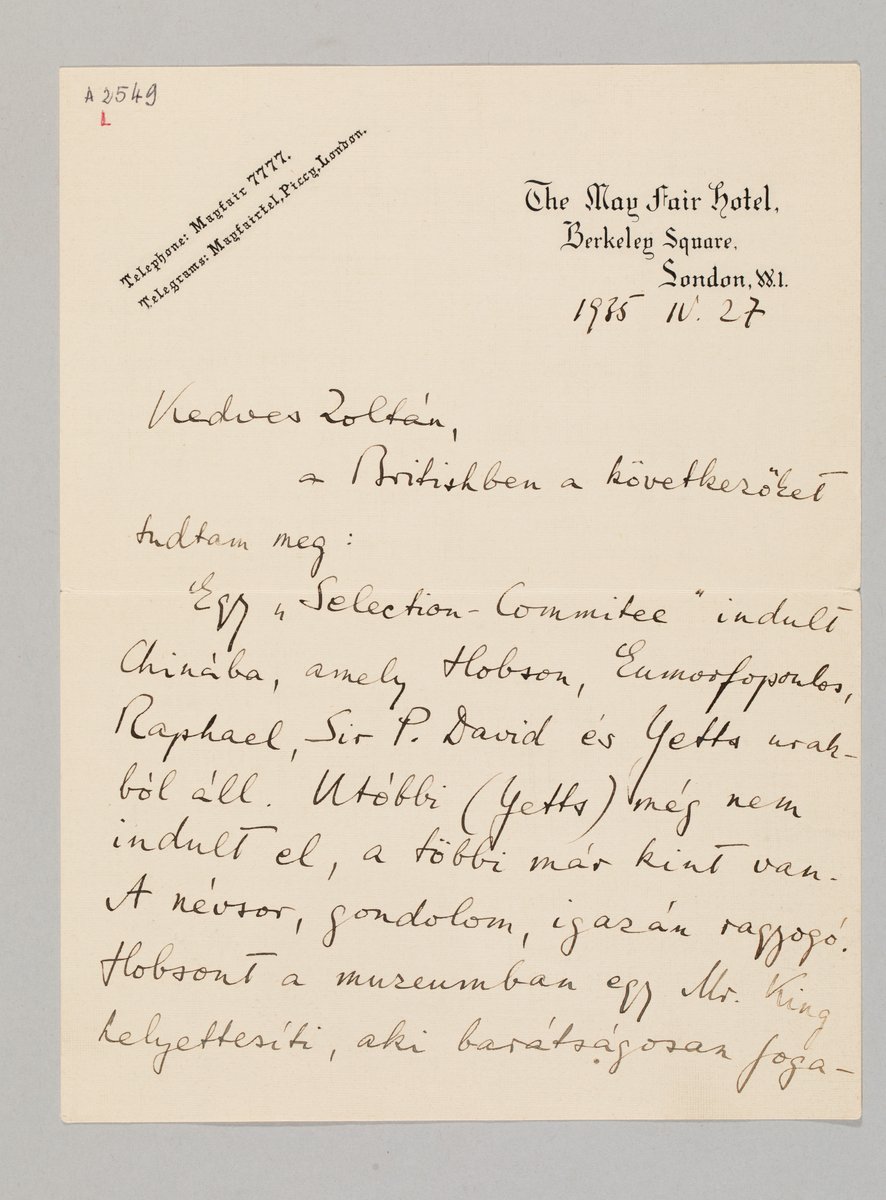 A 2549
L
Telephone: Mayfair 7777.
Telegrams: Mayfairtel, Piccy, London.
The May Fair Hotel,
Berkeley Square,
London, W.1.
1935 IV. 27
Kedves Zoltán,
a Britishben a következőket
tudtam meg :
Egy „Selection-Commitee" indult
Chinába, amely Hobson, Eumorfopoulos,
Raphael, Sir P. David és Yetts urak-
ból áll. Utóbbi (Yetts) még nem
indult el, a többi már kint van.
A névsor, gondolom, igazán ragyogó.
Hobsont a muzeumban egy Mr. King
helyettesíti, aki barátságosan foga-